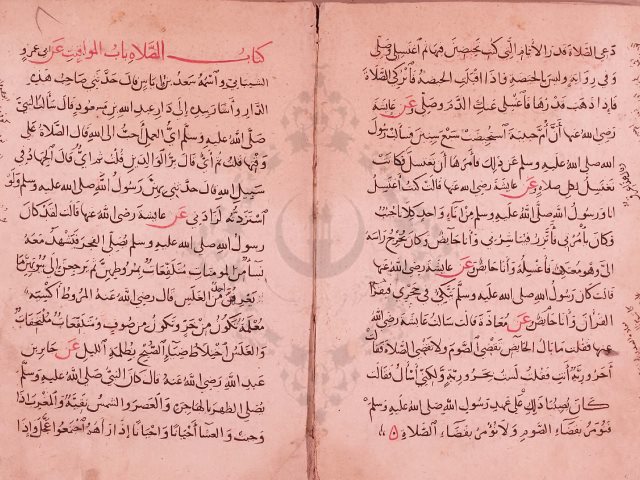 دعي الصلاة قدر الأيام التي كنت تحيضين فيها ثم اغتسلي وصلي
وفي رواية وليس بالحيضة فإذا أقبلت الحيضة فاتركي الصلاة
فإذا ذهب قدرها فاغسلي عنك الدم وصلي عن عائشة
رضي الله عنها أن أم حبيبة استحيضت سبع سنين فسألت رسول
الله صلى الله عليه وسلم عن ذلك فأمرها أن تغتسل فكانت
تغتسل لكل صلاة عن عائشة رضي الله عنها قالت كنت أغتسل
أنا ورسول الله صلى الله عليه وسلم من إناء واحد كلانا جنب
وكان يأمرني فأتزر فيباشرني وأنا حائض وكان يخرج رأسه
إلي وهو معتكف فأغسله وأنا حائض عن عائشة رضي الله عنها
قالت كان رسول الله صلى الله عليه وسلم يتكئ في حجري فيقرأ
القرآن وأنا حائض عن معاذة قالت سألت عائشة رضي الله
عنها فقلت ما بال الحائض تقضي الصوم ولا تقضي الصلاة فقالت
أحرورية أنت فقلت لست بحرورية ولكني أسأل فقالت
كان يصيبنا ذلك على عهد رسول الله صلى الله عليه وسلم
فنؤمر بقضاء الصوم ولا نؤمر بقضاء الصلاة
كتاب الصلاة باب المواقيت عن أبي عمرو
الشيباني واسمه سعد بن إياس قال حدثني صاحب هذه
الدار وأشار بيده إلى دار عبد الله بن مسعود قال سألت النبي
صلى الله عليه وسلم أي العمل أحب إلى الله قال الصلاة على
وقتها قلت ثم أي قال بر الوالدين قلت ثم أي قال الجهاد في
سبيل الله قال حدثني بهن رسول الله صلى الله عليه وسلم ولو
استزدته لزادني عن عائشة رضي الله عنها قالت لقد كان
رسول الله صلى الله عليه وسلم يصلي الفجر فتشهد معه
نساء من المؤمنات متلفعات بمروطهن ثم يرجعن إلى بيوتهن ما
يعرفهن أحد من الغلس قال رضي الله عنه المروط أكسية
معلمة تكون من خز وتكون من صوف ومتلفعات ملتحفات
والغلس اختلاط ضياء الصبح بظلمة الليل عن جابر بن
عبد الله رضي الله عنه قال كان النبي صلى الله عليه وسلم
يصلي الظهر بالهاجرة والعصر والشمس نقية والمغرب إذا
وجبت والعشاء أحيانا وأحيانا إذا رآهم اجتمعوا عجل وإذا